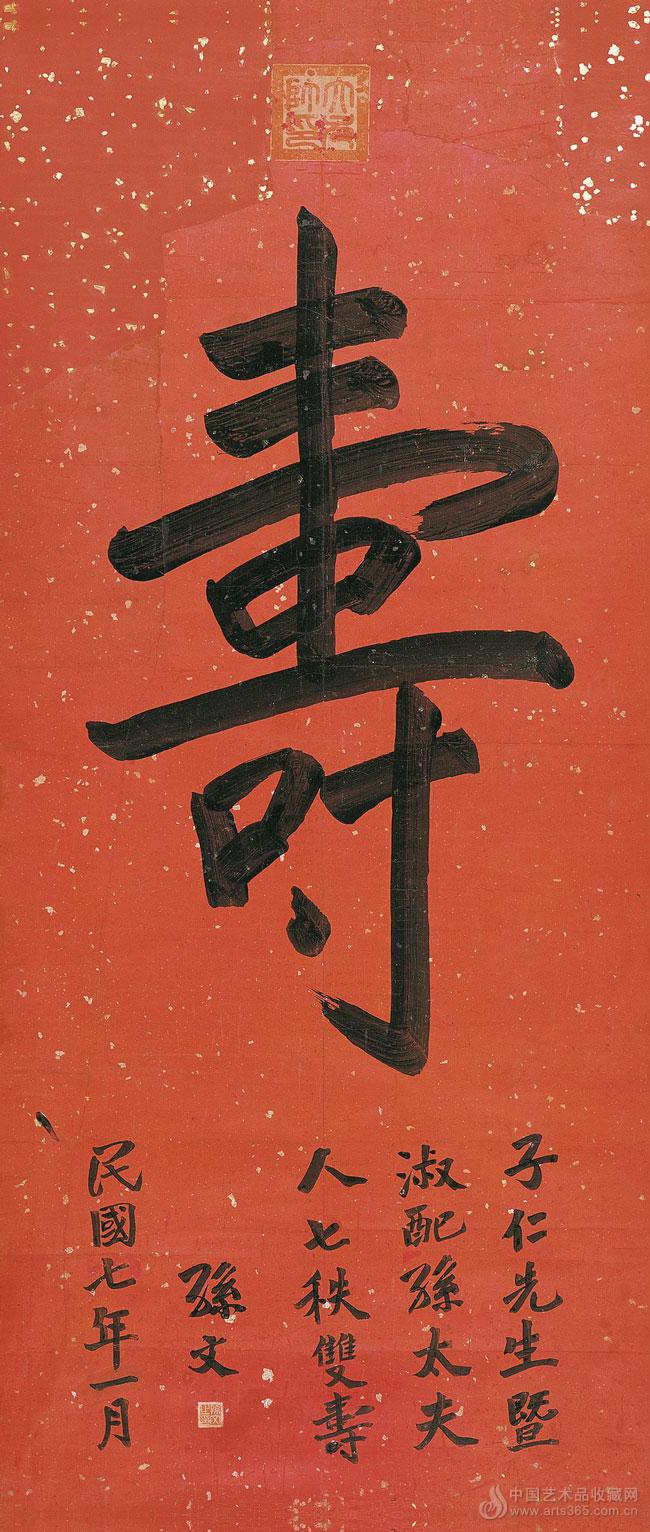 大元帥印
壽
子仁先生暨
淑配孫太夫
人七秩雙壽
孫文
民國七年一月
孫文之印
中国艺术品收藏网
www.arts365.com.cn